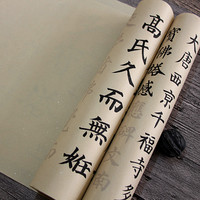 大唐西京千福寺多
寶佛塔感
高氏久而無姙